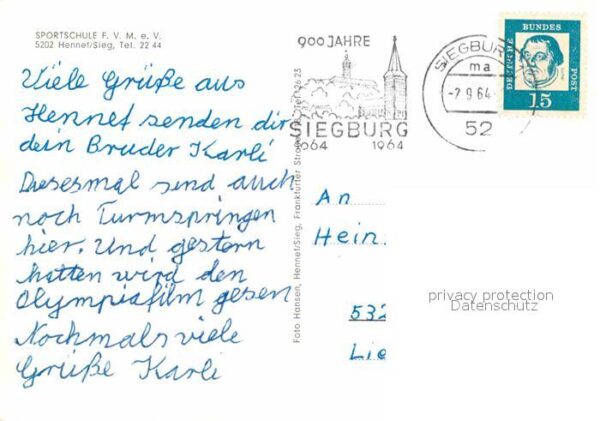 SPORTSCHULE F. V. M. e. V.
5202 Hennef/Sieg, Tel. 22 44
Viele Grüße aus
Hennef senden dir
dein Bruder Karli
Diesesmal sind auch
noch Turmspringen
hier. Und gestern
hatten wird den
Olympiafilm gesen
Nochmals viele
Grüße Karli
Foto Hansen, Hennef/Sieg, Frankfurter Straße
900 JAHRE
SIEGBURG
1964
SIEGBUR
ma
-2.9.64
52
DEUTSCHE BUNDES POST
15
An
Hein
532
Lie
privacy protection
Datenschutz